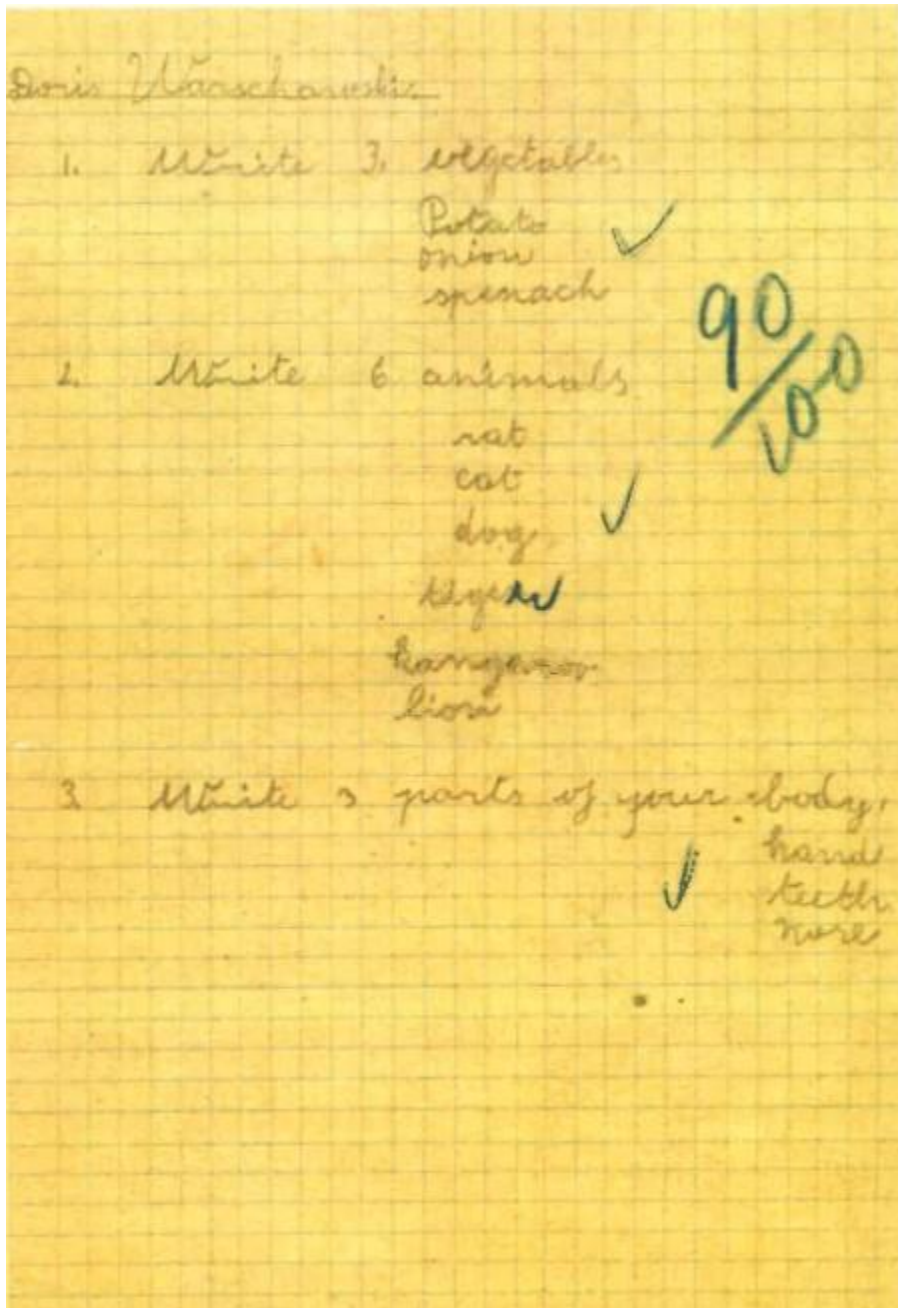 Doris Warschawski
1. Write 3. vegetables
Potato
onion
spenach
90/100
2. Write 6 animals
rat
cat
dog
tiger
kangaroo
lion
3 Write 3 parts of your body.
hand
teeth
nose